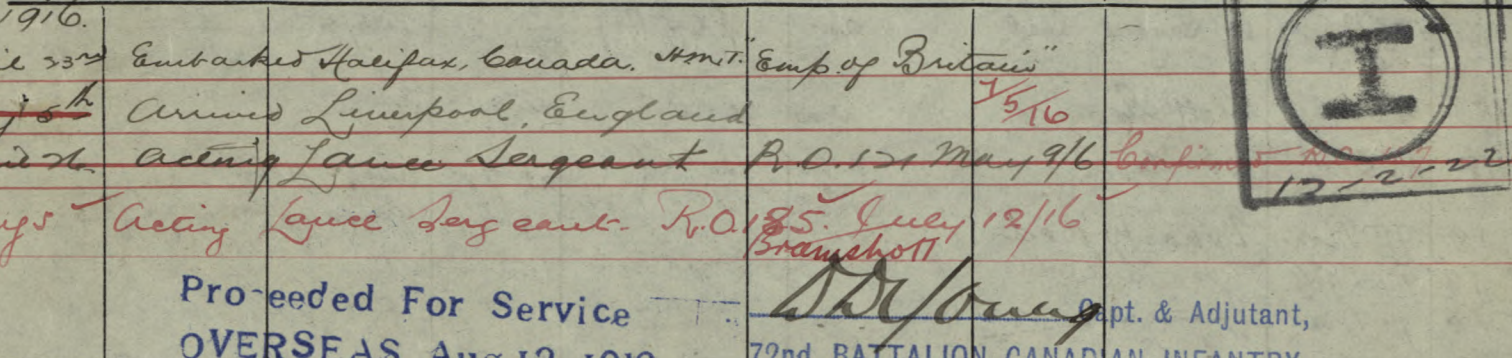 1916.
23rd Embarked Halifax, Canada. H.M.T. "Emp. of Britain"
5th Arrived Liverpool, England 7/5/16
Acting Lance Sergeant R.O. 121 May 9/16 Confirmed
Acting Lance Sergeant. R.O. 185. July 12/16
Bramshott
I
12-2-22
Pro-eeded For Service
OVERSEAS Aug 12
D D Young Capt. & Adjutant,
72nd BATTALION CANADIAN INFANTRY